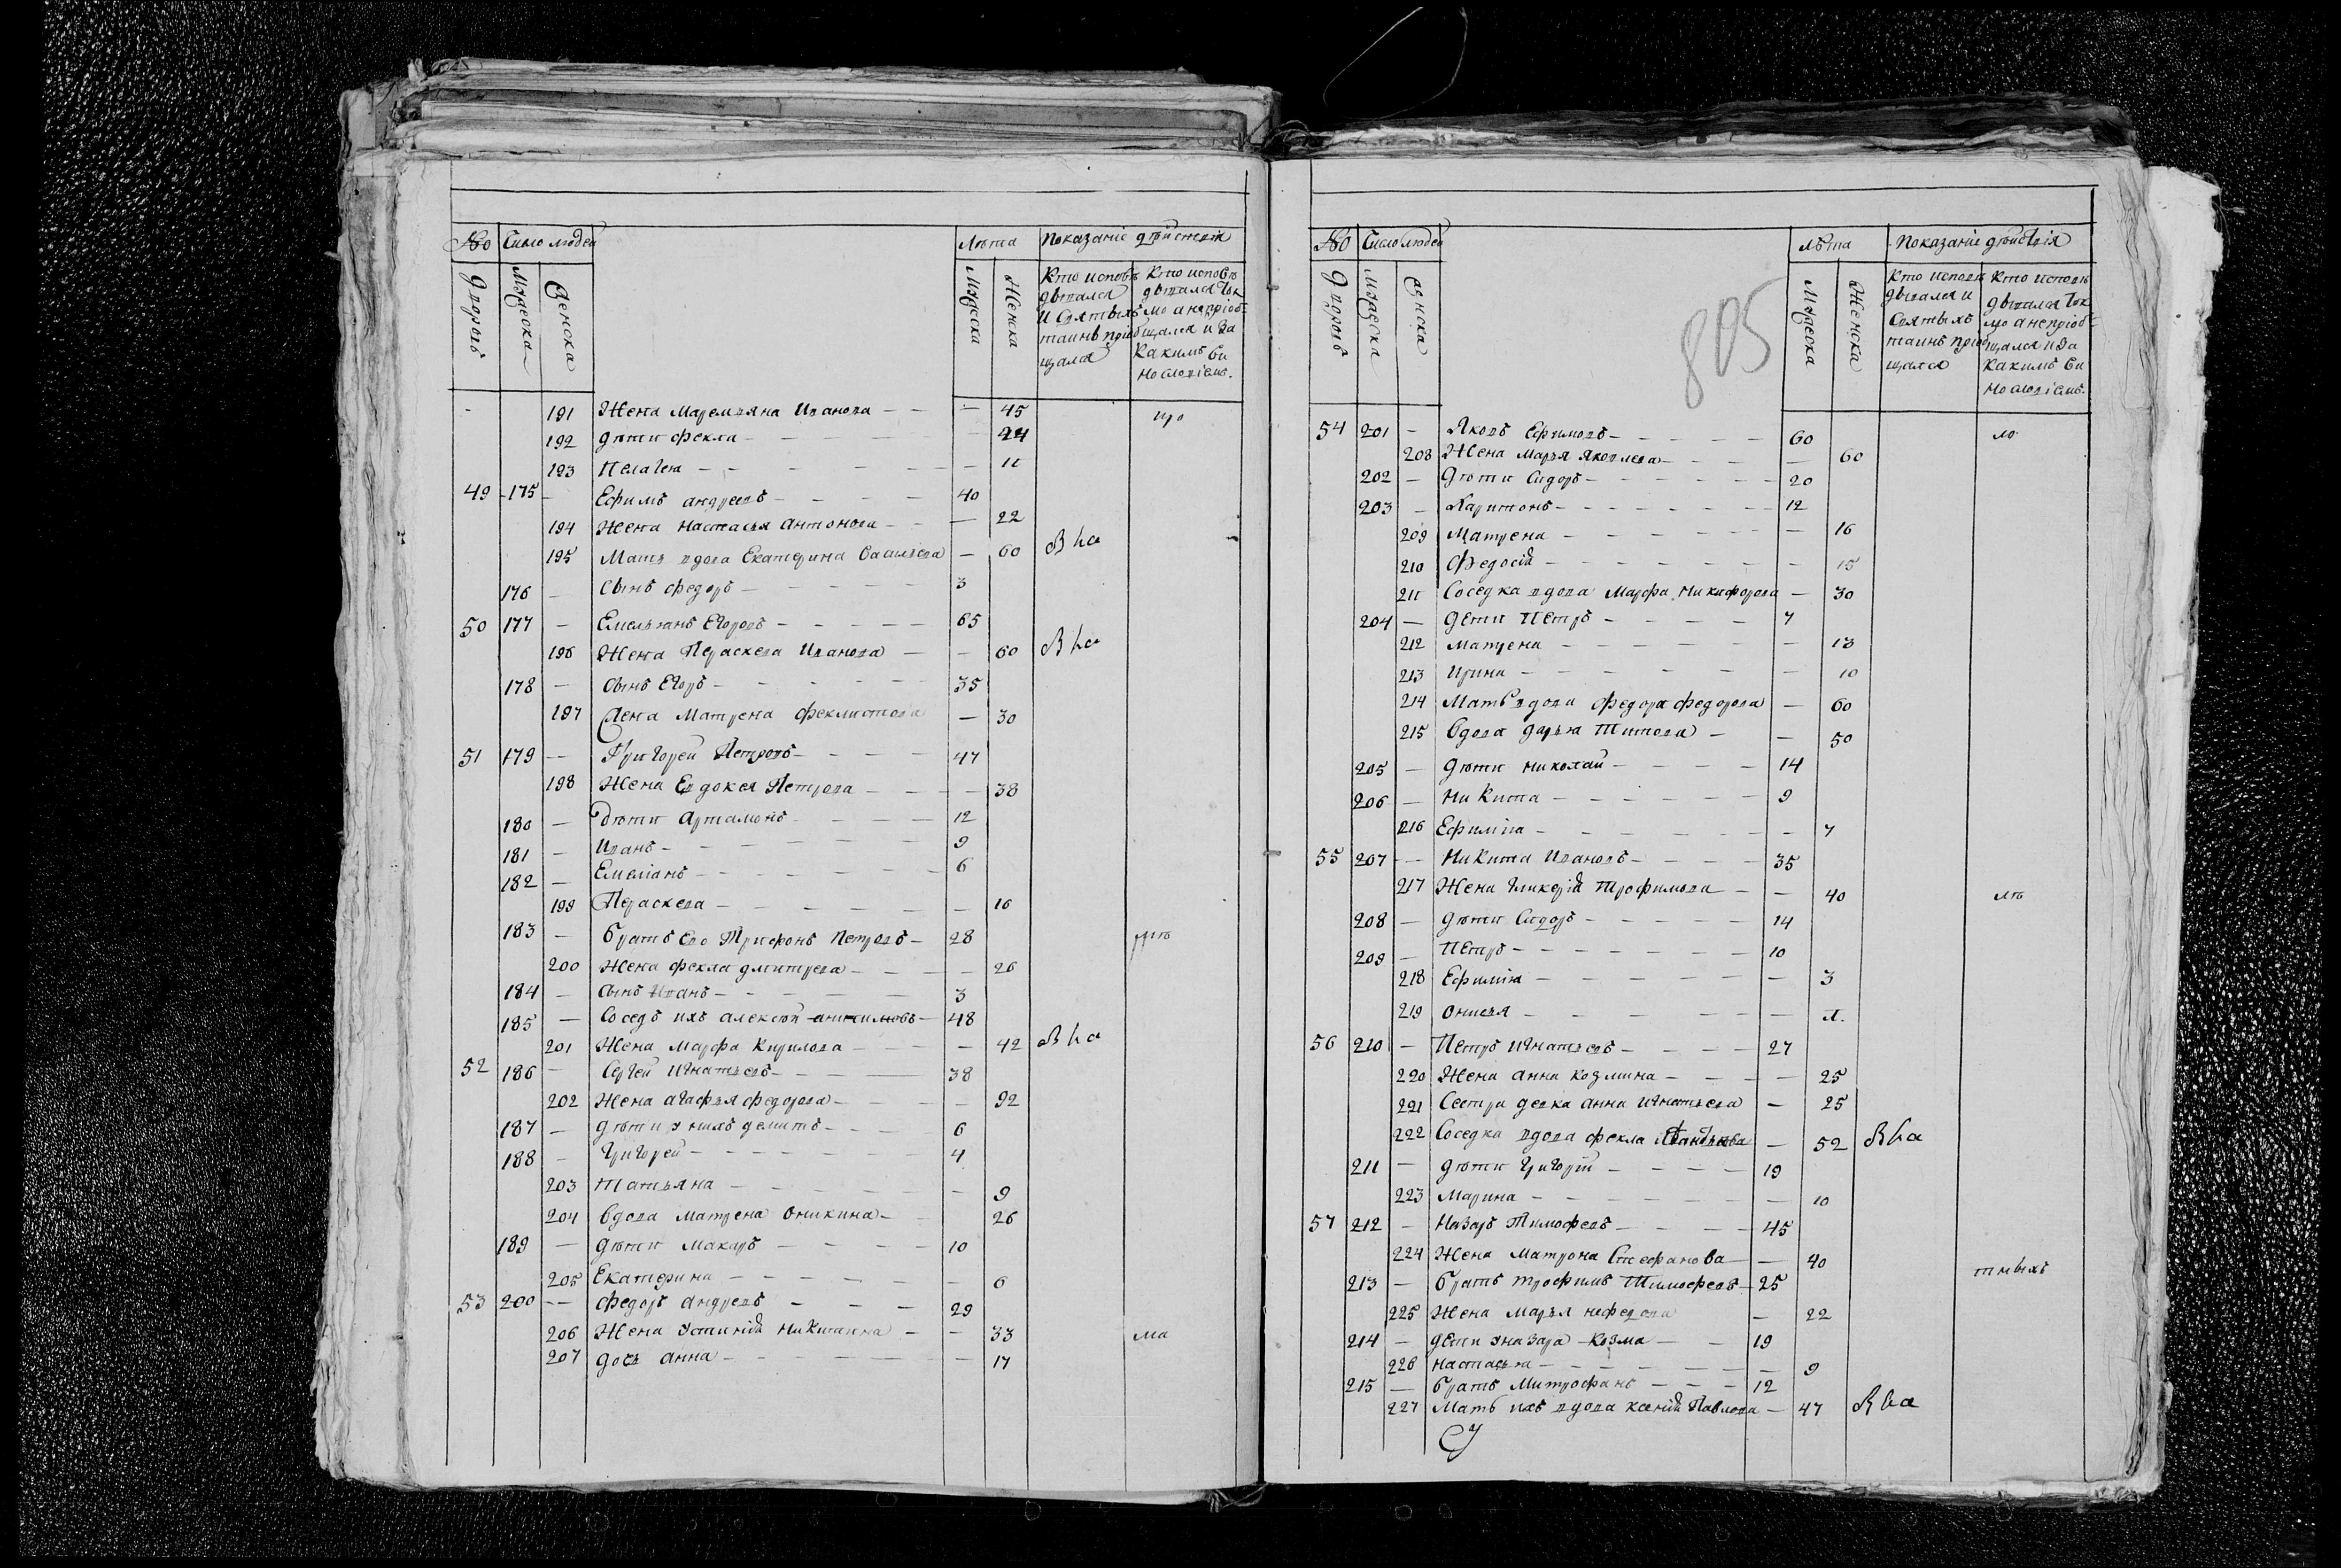 № Число людей Лѣта Показаніе дѣйствія
Дворовъ Мужеска Женска Мужеска Женска
Кто исповѣдывался и Святыхъ таинъ пріобщался
Кто исповѣдывался ток мо а непріобщался и за какимъ виномословіемъ.
191 Жена Маремьяна Иванова — 45
192 дѣти Фекла — 24
193 Пелагея — 11
49 175 — Ефимъ андреевъ — 40
194 Жена настасья антонова — 22
195 Мать вдова Екатерина Васильева — 60
176 — Сынъ федоръ — 3
50 177 — Емельянъ Егоровъ — 65
196 Жена Параскева Иванова — 60
178 — сынъ Егоръ — 35
197 Жена Матрена феклистова — 30
51 179 — Григорей Петровъ — 47
198 Жена Евдокея Петрова — 38
180 — дѣти Артамонъ — 12
181 — Иванъ — 9
182 — Емеліанъ — 6
199 Параскева — 16
183 — братъ его Трифонъ Петровъ — 28
200 Жена фекла дмитрева — 26
184 — сынъ Иванъ — 3
185 — Соседъ ихъ алексѣй — 48
201 Жена Марфа Кирилова — 42
52 186 — Сергей Игнатьевъ — 38
202 Жена агафья федорова — 92
187 — дѣти у нихъ — 6
188 — Григорей — 4
203 Татьяна — 9
204 Вдова Матрена Оникина — 26
189 — дѣти Макаръ — 10
205 Екатерина — 6
53 200 — федоръ андреевъ — 29
206 Жена Устинія Никитина — 33 ма
207 дочь анна — 17
№ Число людей лѣта Показаніе дѣйствія
Дворовъ Мужеска женска Мужеска Женска
Кто исповѣдывался и Святыхъ таинъ пріобщался
Кто исповѣдывался ток мо а непріобщался и за какимъ виномословіемъ.
805
54 201 — Яковъ Ефимовъ — 60
208 Жена Марья Яковлева — 60
202 — дѣти Сидоръ — 20
203 — Харитонъ — 12
209 Матрена — 16
210 Федосія — 15
211 Соседка вдова Марфа Никифорова — 30
204 — дети Петръ — 7
212 Матрена — 13
213 Ирина — 10
214 Мать вдова федора федорова — 60
215 Вдова дарья Титова — 50
205 — дѣти николай — 14
206 — Никита — 9
216 Ефимія — 7
55 207 — Никита Ивановъ — 35
217 Жена Гликерія Трофимова — 40
208 — дѣти Сидоръ — 14
209 — Петръ — 10
218 Ефимія — 3
219 Онисья —
56 210 — Петръ Игнатьевъ — 27
220 Жена анна козмина — 25
221 Сестра девка анна Игнатьева — 25
222 Соседка вдова фекла — 52
211 — дѣти Григорій — 19
223 Марина — 10
57 212 — Назаръ Тимофевъ — 45
224 Жена Матрона Стефанова — 40
213 — братъ трофимъ Тимофеевъ — 25
225 Жена Марья нефедова — 22
214 — дети у назара — Козма — 19
226 настасья — 9
215 — братъ Митрофанъ — 12
227 Мать ихъ вдова ксенія Павлова — 47